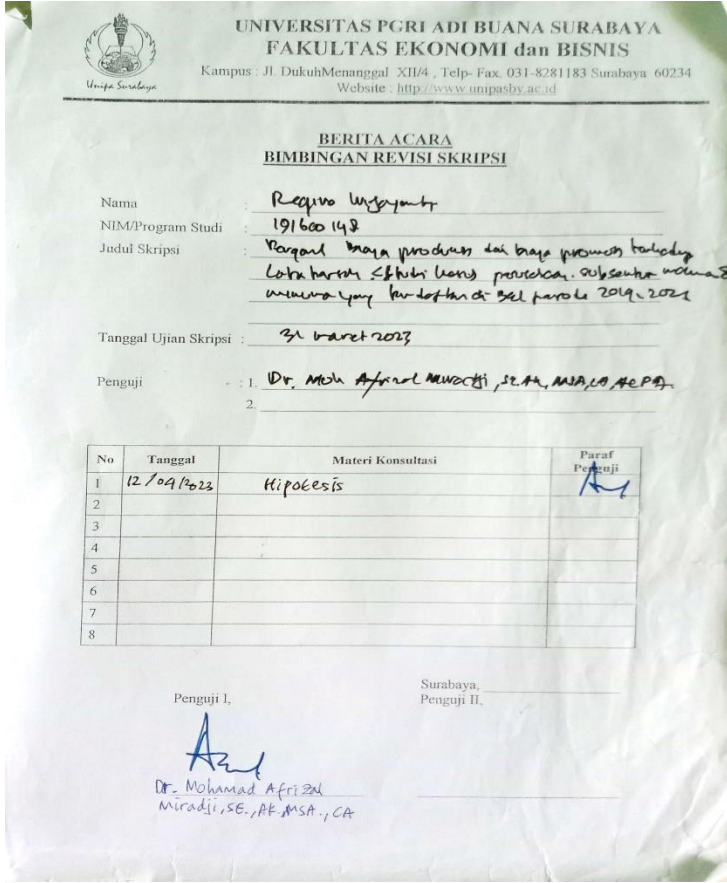 UNIVERSITAS PGRI ADI BUANA SURABAYA
FAKULTAS EKONOMI dan BISNIS
Kampus : Jl. DukuhMenanggal XII/4 , Telp- Fax. 031-8281183 Surabaya 60234
Website : http://www.unipasby.ac.id
Unipa Surabaya
BERITA ACARA
BIMBINGAN REVISI SKRIPSI
Nama :
NIM/Program Studi : 191600148
Judul Skripsi : biaya produksi dan biaya promosi terhadap
Laba bersih (Studi kasus perusahaan subsektor
yang terdaftar di BEI periode 2019-2021
Tanggal Ujian Skripsi : 31 maret 2023
Penguji : 1. Dr. Moh Afrizal Miradji, SE.Ak, MSA, CA,
2.
No Tanggal Materi Konsultasi Paraf Penguji
1 12/04/2023 Hipotesis
2
3
4
5
6
7
8
Surabaya,
Penguji I, Penguji II,
Dr. Mohamad Afrizal
Miradji, SE., AK., MSA., CA